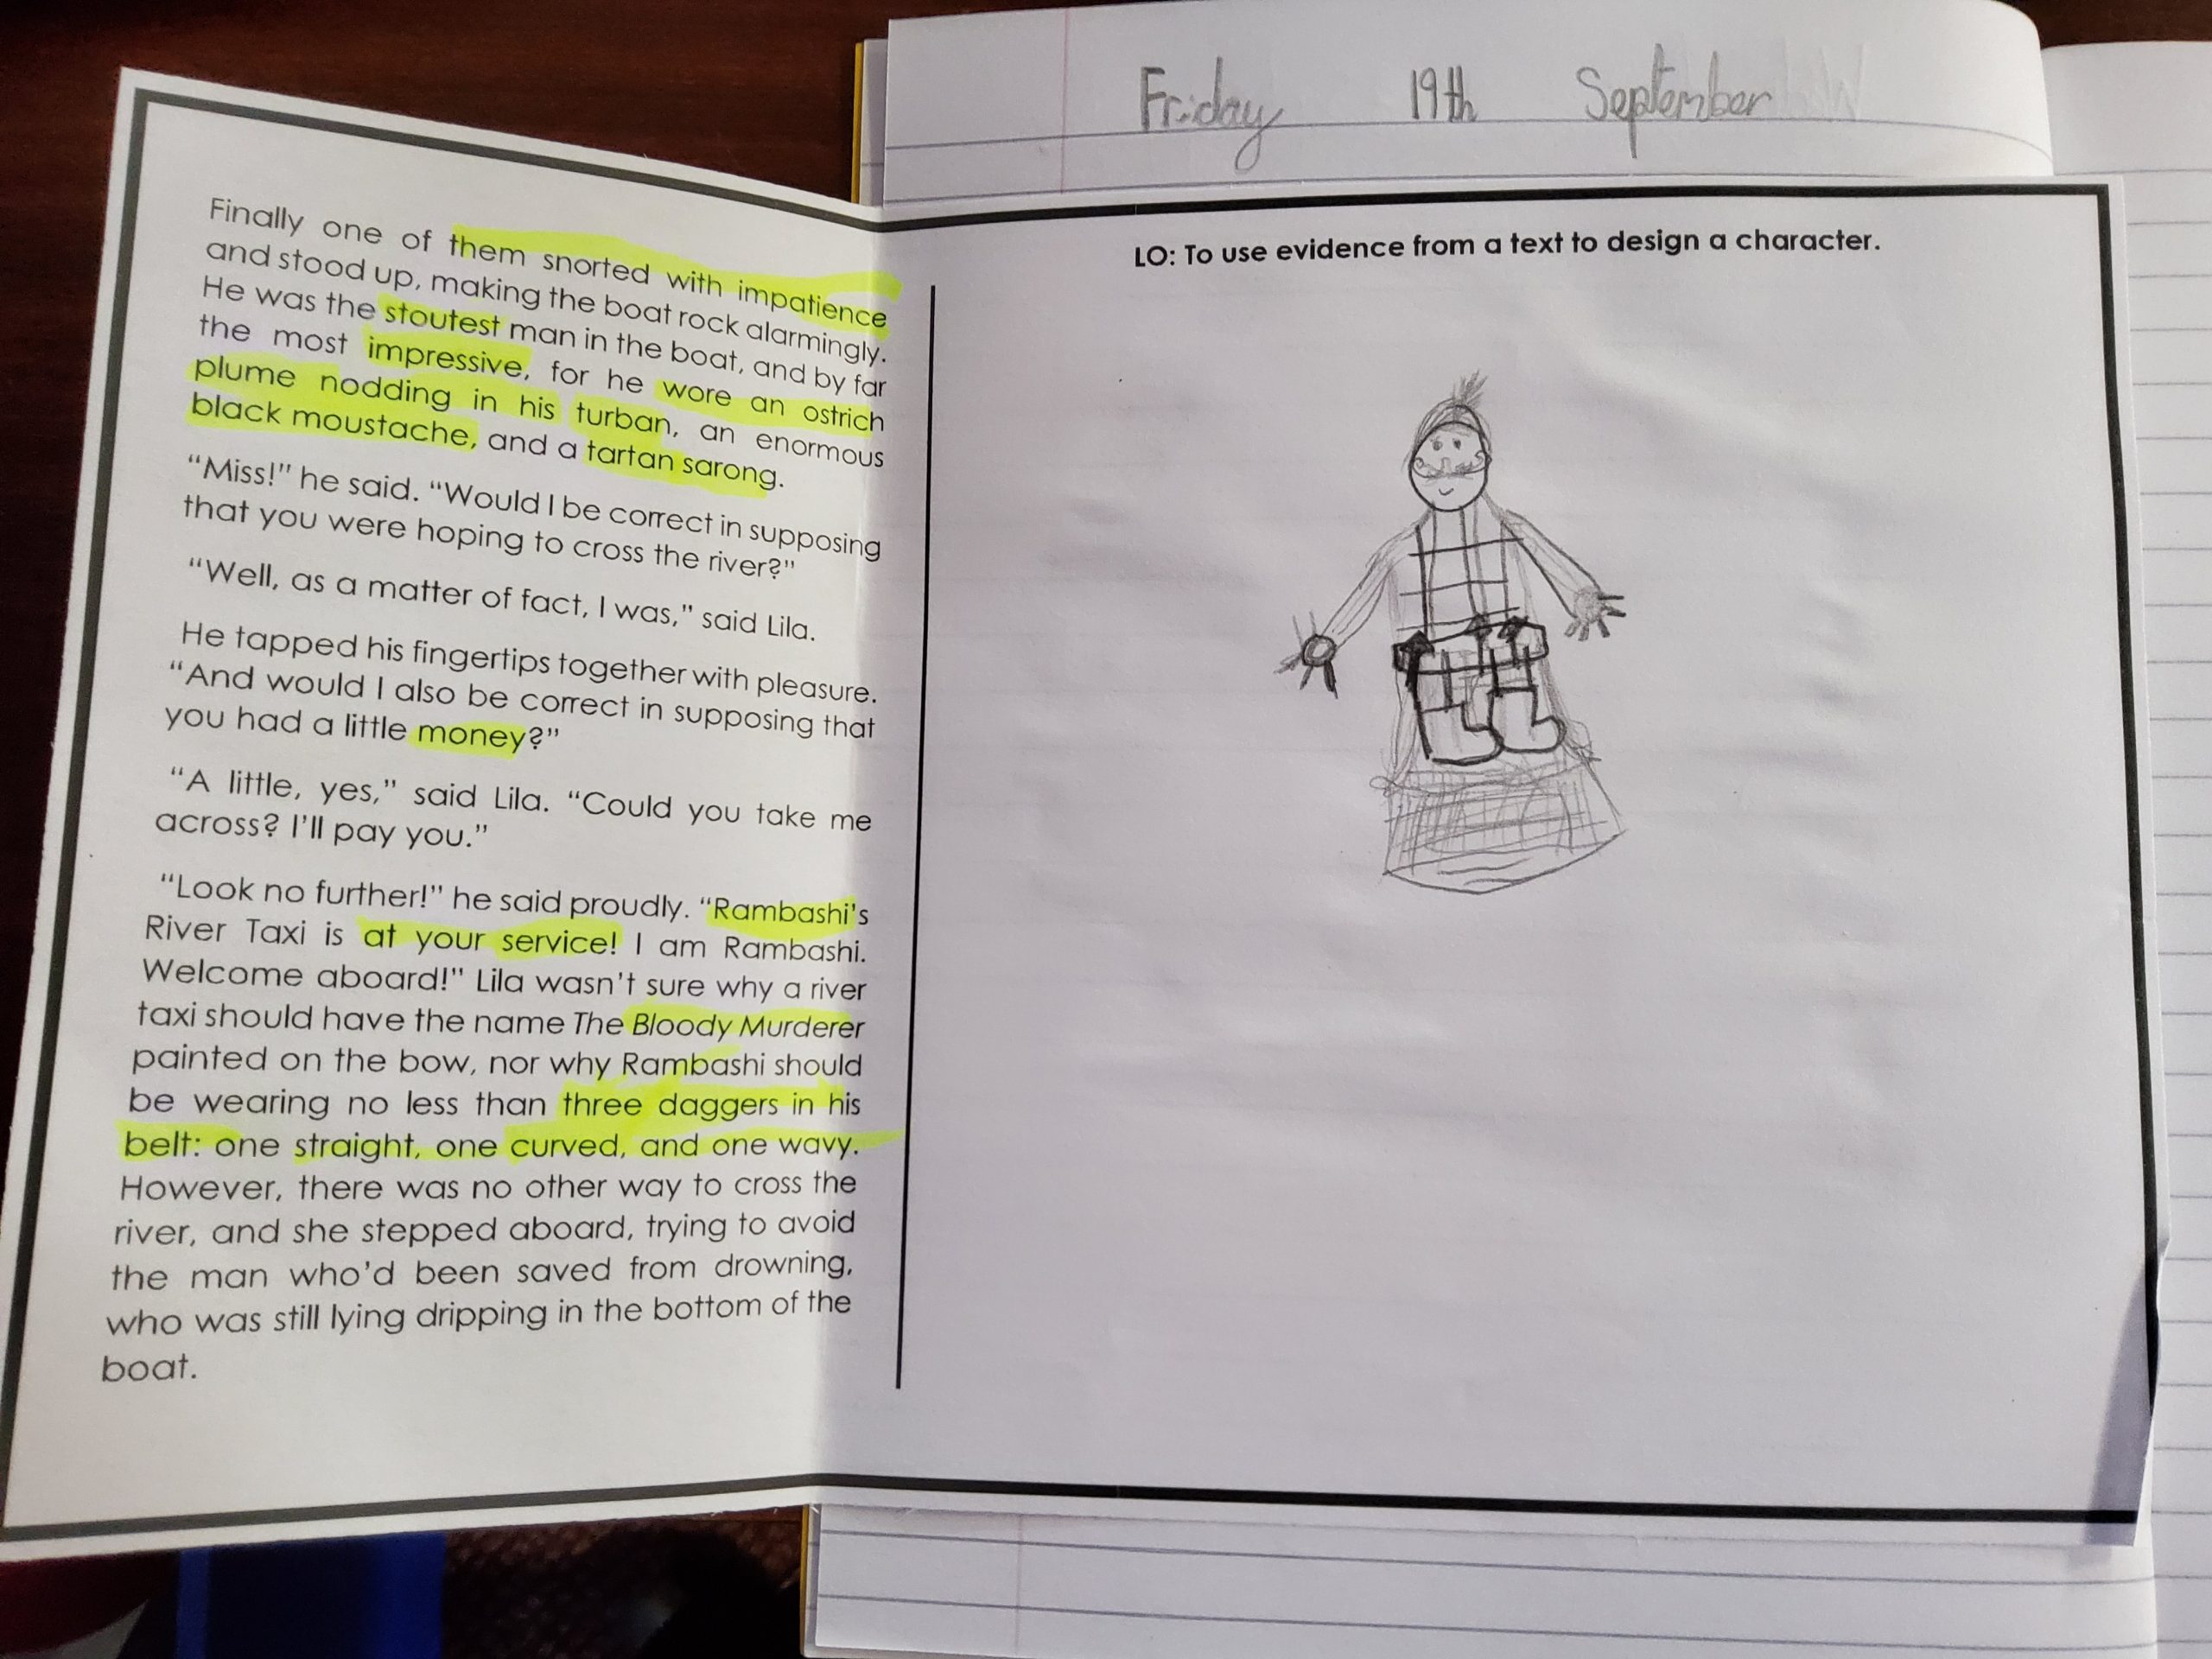 Friday 19th September
Finally one of them snorted with impatience
and stood up, making the boat rock alarmingly.
He was the stoutest man in the boat, and by far
the most impressive, for he wore an ostrich
plume nodding in his turban, an enormous
black moustache, and a tartan sarong.
“Miss!” he said. “Would I be correct in supposing
that you were hoping to cross the river?”
“Well, as a matter of fact, I was,” said Lila.
He tapped his fingertips together with pleasure.
“And would I also be correct in supposing that
you had a little money?”
“A little, yes,” said Lila. “Could you take me
across? I’ll pay you.”
“Look no further!” he said proudly. “Rambashi’s
River Taxi is at your service! I am Rambashi.
Welcome aboard!” Lila wasn’t sure why a river
taxi should have the name The Bloody Murderer
painted on the bow, nor why Rambashi should
be wearing no less than three daggers in his
belt: one straight, one curved, and one wavy.
However, there was no other way to cross the
river, and she stepped aboard, trying to avoid
the man who’d been saved from drowning,
who was still lying dripping in the bottom of the
boat.
LO: To use evidence from a text to design a character.